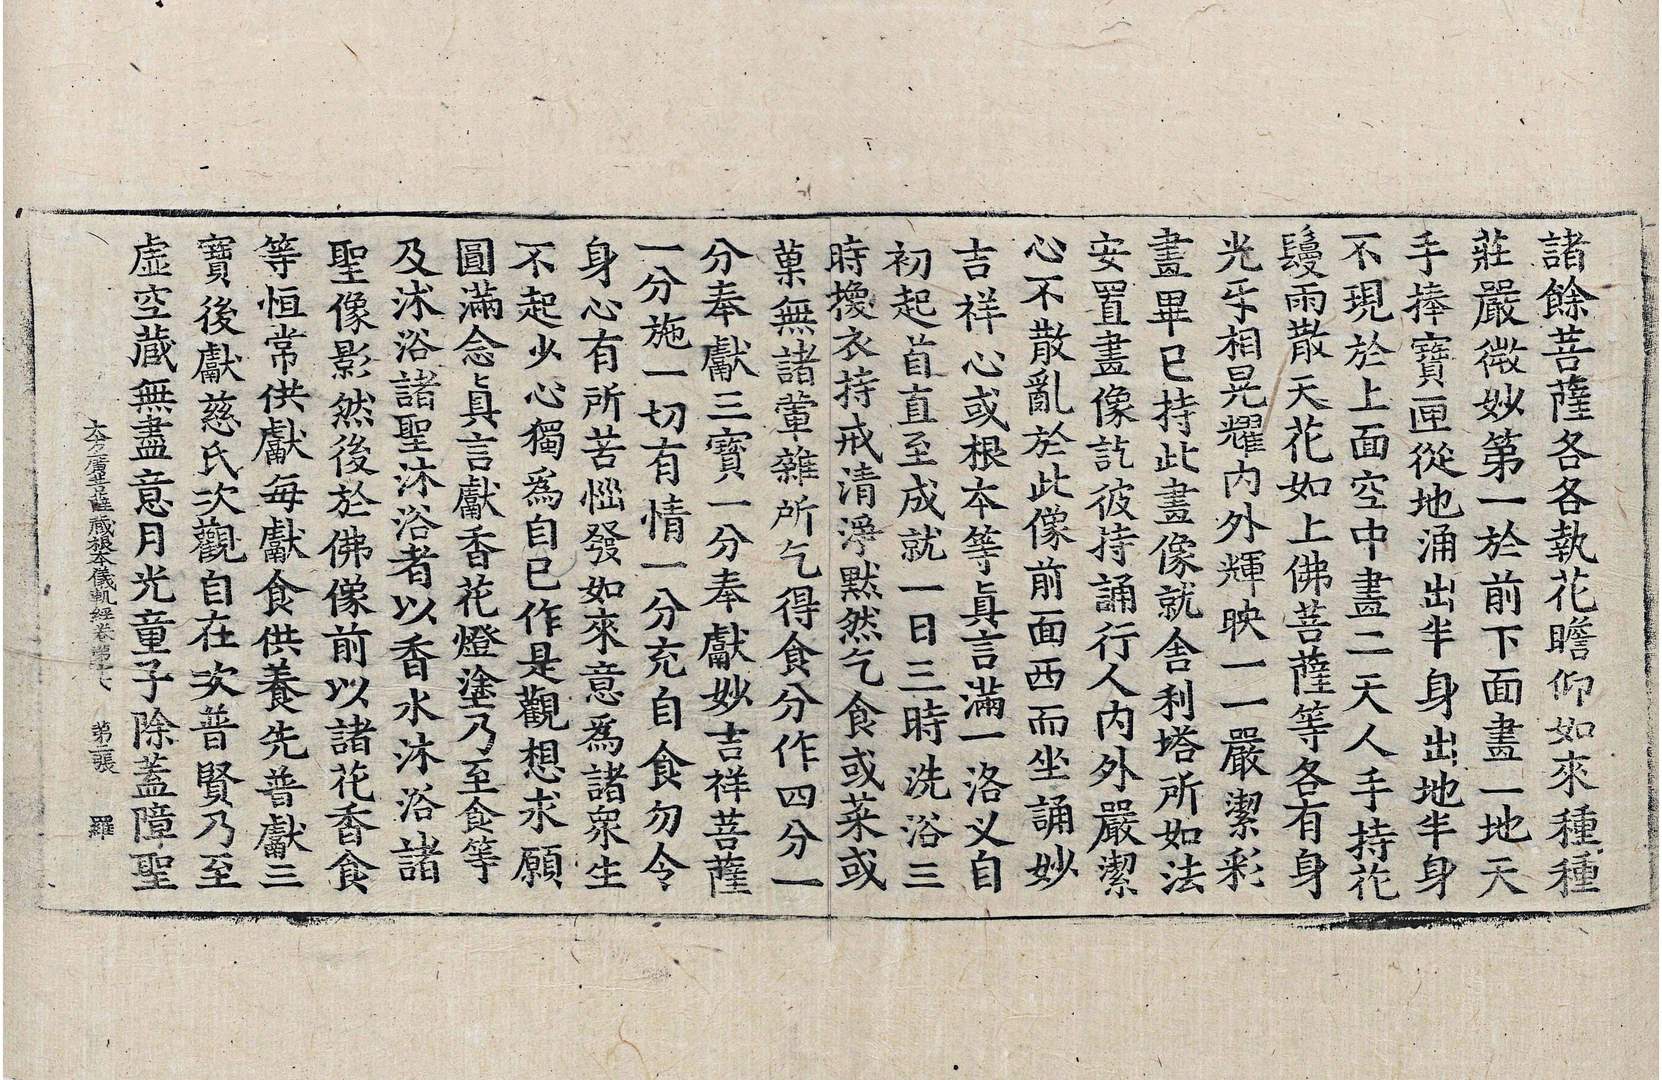 諸餘菩薩各各執花瞻仰如來種種
莊嚴微妙第一於前下面畫一地天
手捧寶匣從地涌出半身出地半身
不現於上面空中畫二天人手持花
鬘雨散天花如上佛菩薩等各有身
光牙相晃耀內外輝映一一嚴潔彩
畫畢已持此畫像就舍利塔所如法
安置畫像訖彼持誦行人內外嚴潔
心不散亂於此像前面西而坐誦妙
吉祥心或根本等真言滿一洛义自
初起首直至成就一日三時洗浴三
時換衣持戒清淨默然乞食或菜或
菓無諸葷雜所乞得食分作四分一
分奉獻三寶一分奉獻妙吉祥菩薩
一分施一切有情一分充自食勿令
身心有所苦惱發如來意為諸衆生
不起少心獨為自已作是觀想求願
圓滿念真言獻香花燈塗乃至食等
及沐浴諸聖沐浴者以香水沐浴諸
聖像影然後於佛像前以諸花香食
等恒常供獻每獻食供養先普獻三
寶後獻慈氏次觀自在次普賢乃至
虛空藏無盡意月光童子除蓋障聖
菩薩藏根本儀軌經卷第 第三張 羅